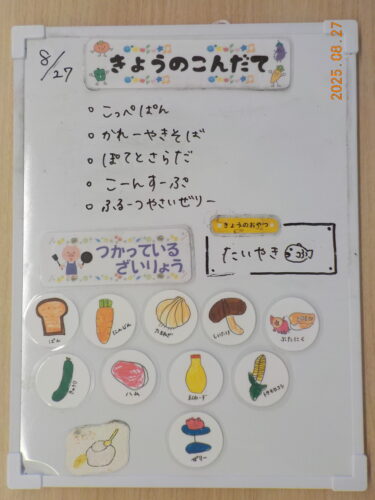 2025.08.27
8/27
きょうのこんだて
○ こっぺぱん
○ かれーやきそば
○ ぽてとさらだ
○ こーんすーぷ
○ ふるーつやさいぜりー
きょうのおやつ
たいやき
つかっている
ざいりょう
ぱん
にんじん
たまねぎ
しいたけ
ぶたにく
きゅうり
ハム
まよねーず
トウモロコシ
ゼリー